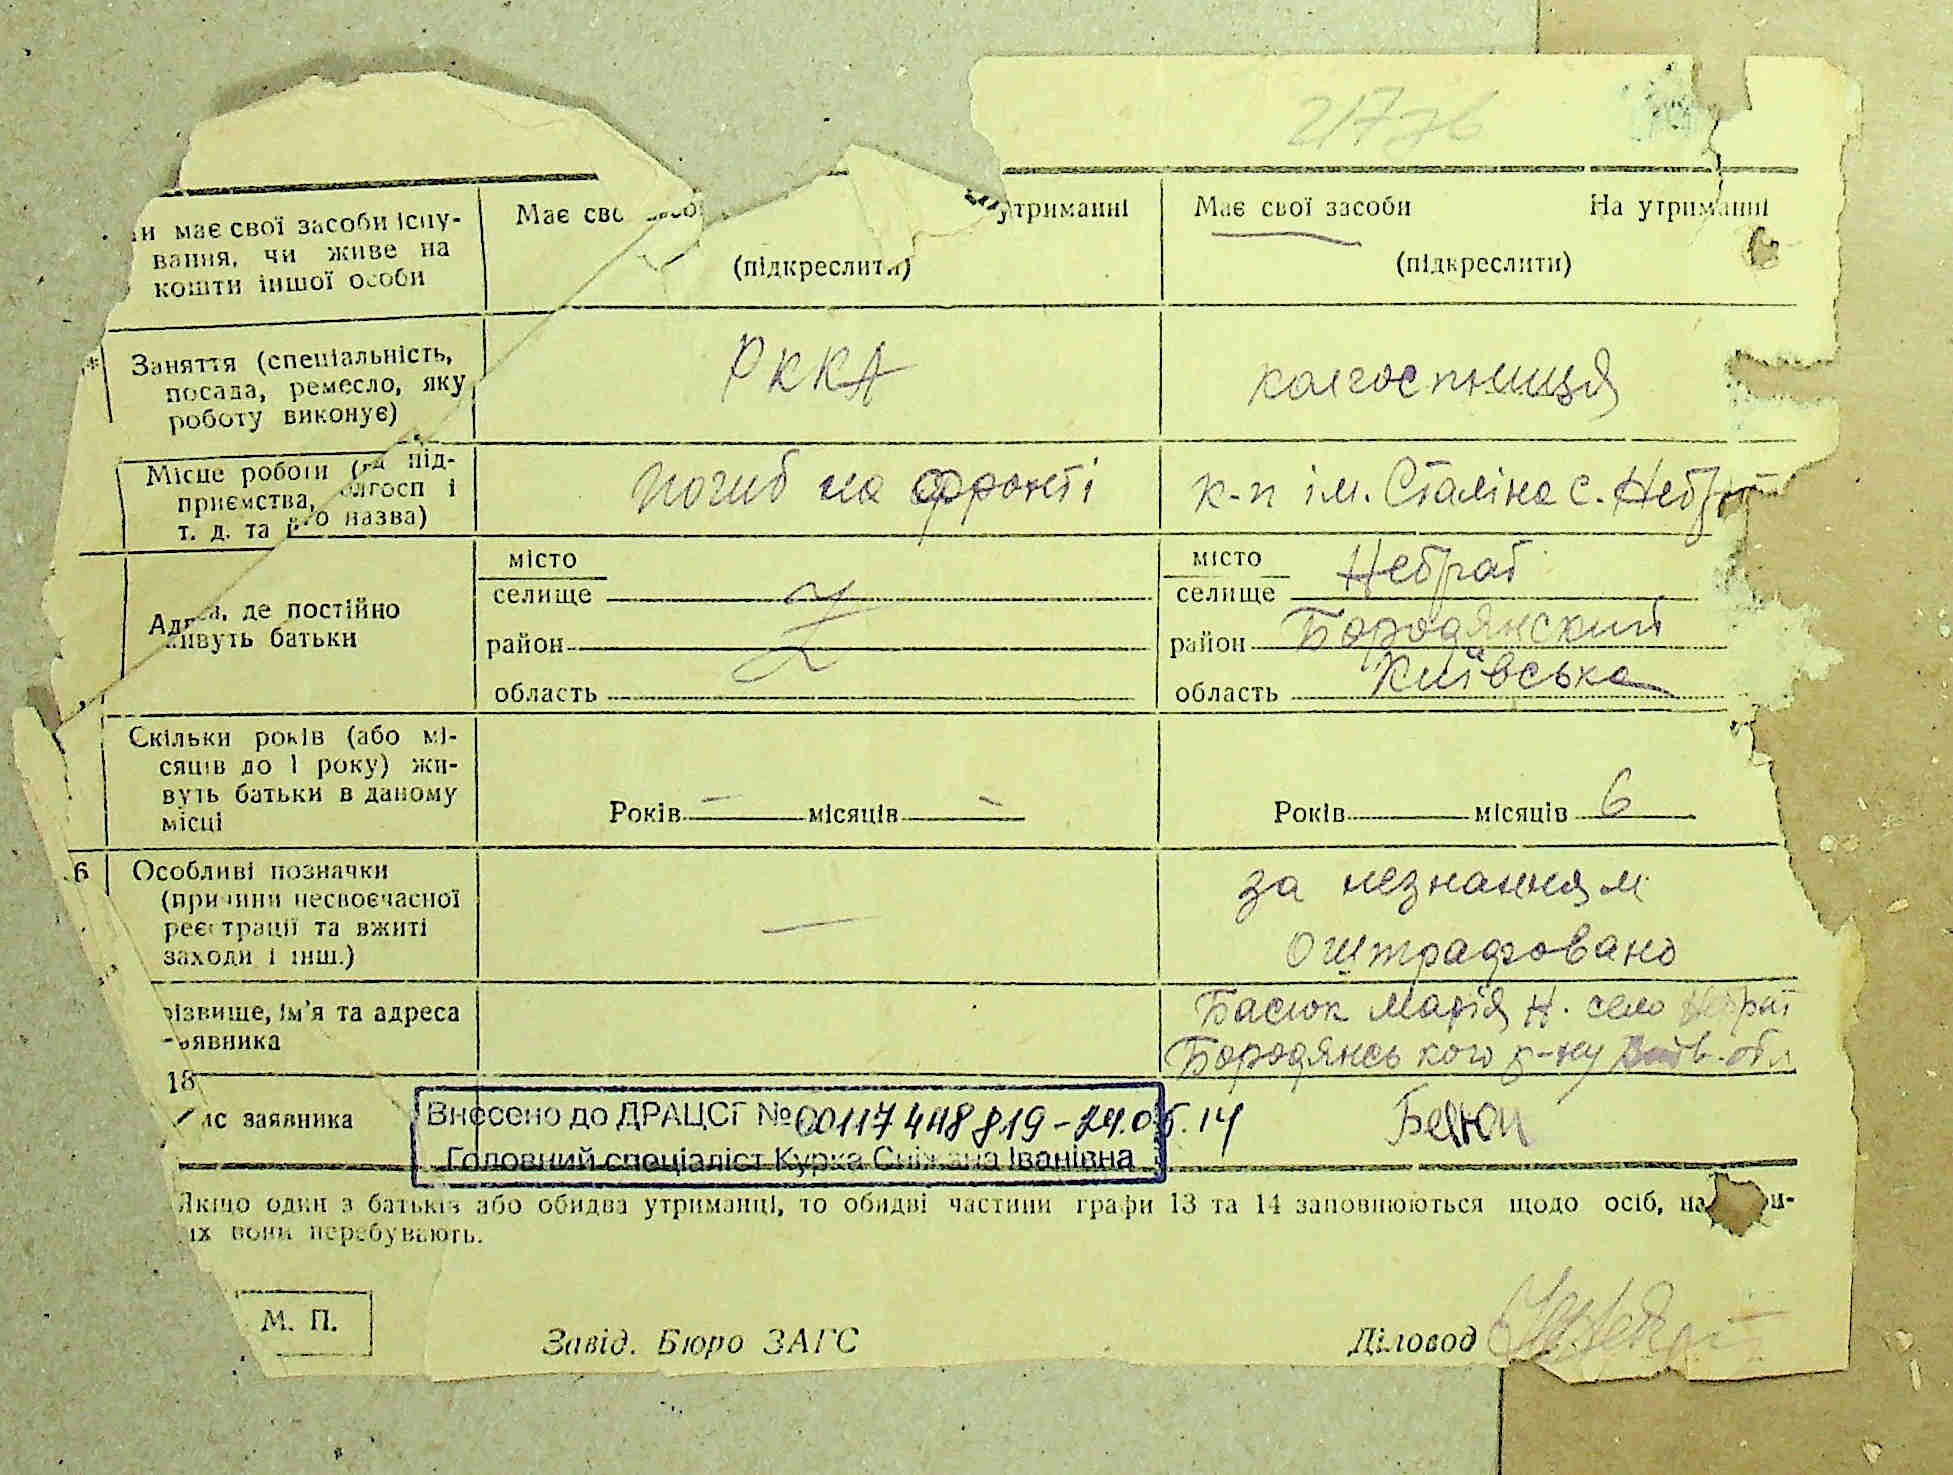 21776
и має свої засоби існу-
вання, чи живе на
кошти іншої особи
Має сво засо утриманні
(підкреслити)
Має свої засоби На утриманні
(підкреслити)
Заняття (спеціальність,
посада, ремесло, яку
роботу виконує)
РККА
колгоспниця
Місце роботи (для під-
приємства, колгосп і
т. д. та його назва)
погиб на фронті
к-п ім. Сталіна с. Небрат
Адреса, де постійно
живуть батьки
місто
селище
район
область
місто
селище Небрат
район Бородянский
область Київська
Скільки років (або мі-
сяців до 1 року) жи-
вуть батьки в даному
місці
Років — місяців —
Років місяців 6
6 Особливі позначки
(причини несвоєчасної
реєстрації та вжиті
заходи і інш.)
—
за незнанням
Оштрафовано
різвище, ім'я та адреса
заявника
Басюк Марія Н. село
Бородянського р-ну обл
18
ис заявника
Внесено до ДРАЦСГ № 00117448819-24.05.14
Головний спеціаліст Курка Сніжана Іванівна
Якщо один з батьків або обидва утриманці, то обидві частини графи 13 та 14 заповнюються щодо осіб, на
их вони перебувають.
М. П.
Завід. Бюро ЗАГС
Діловод